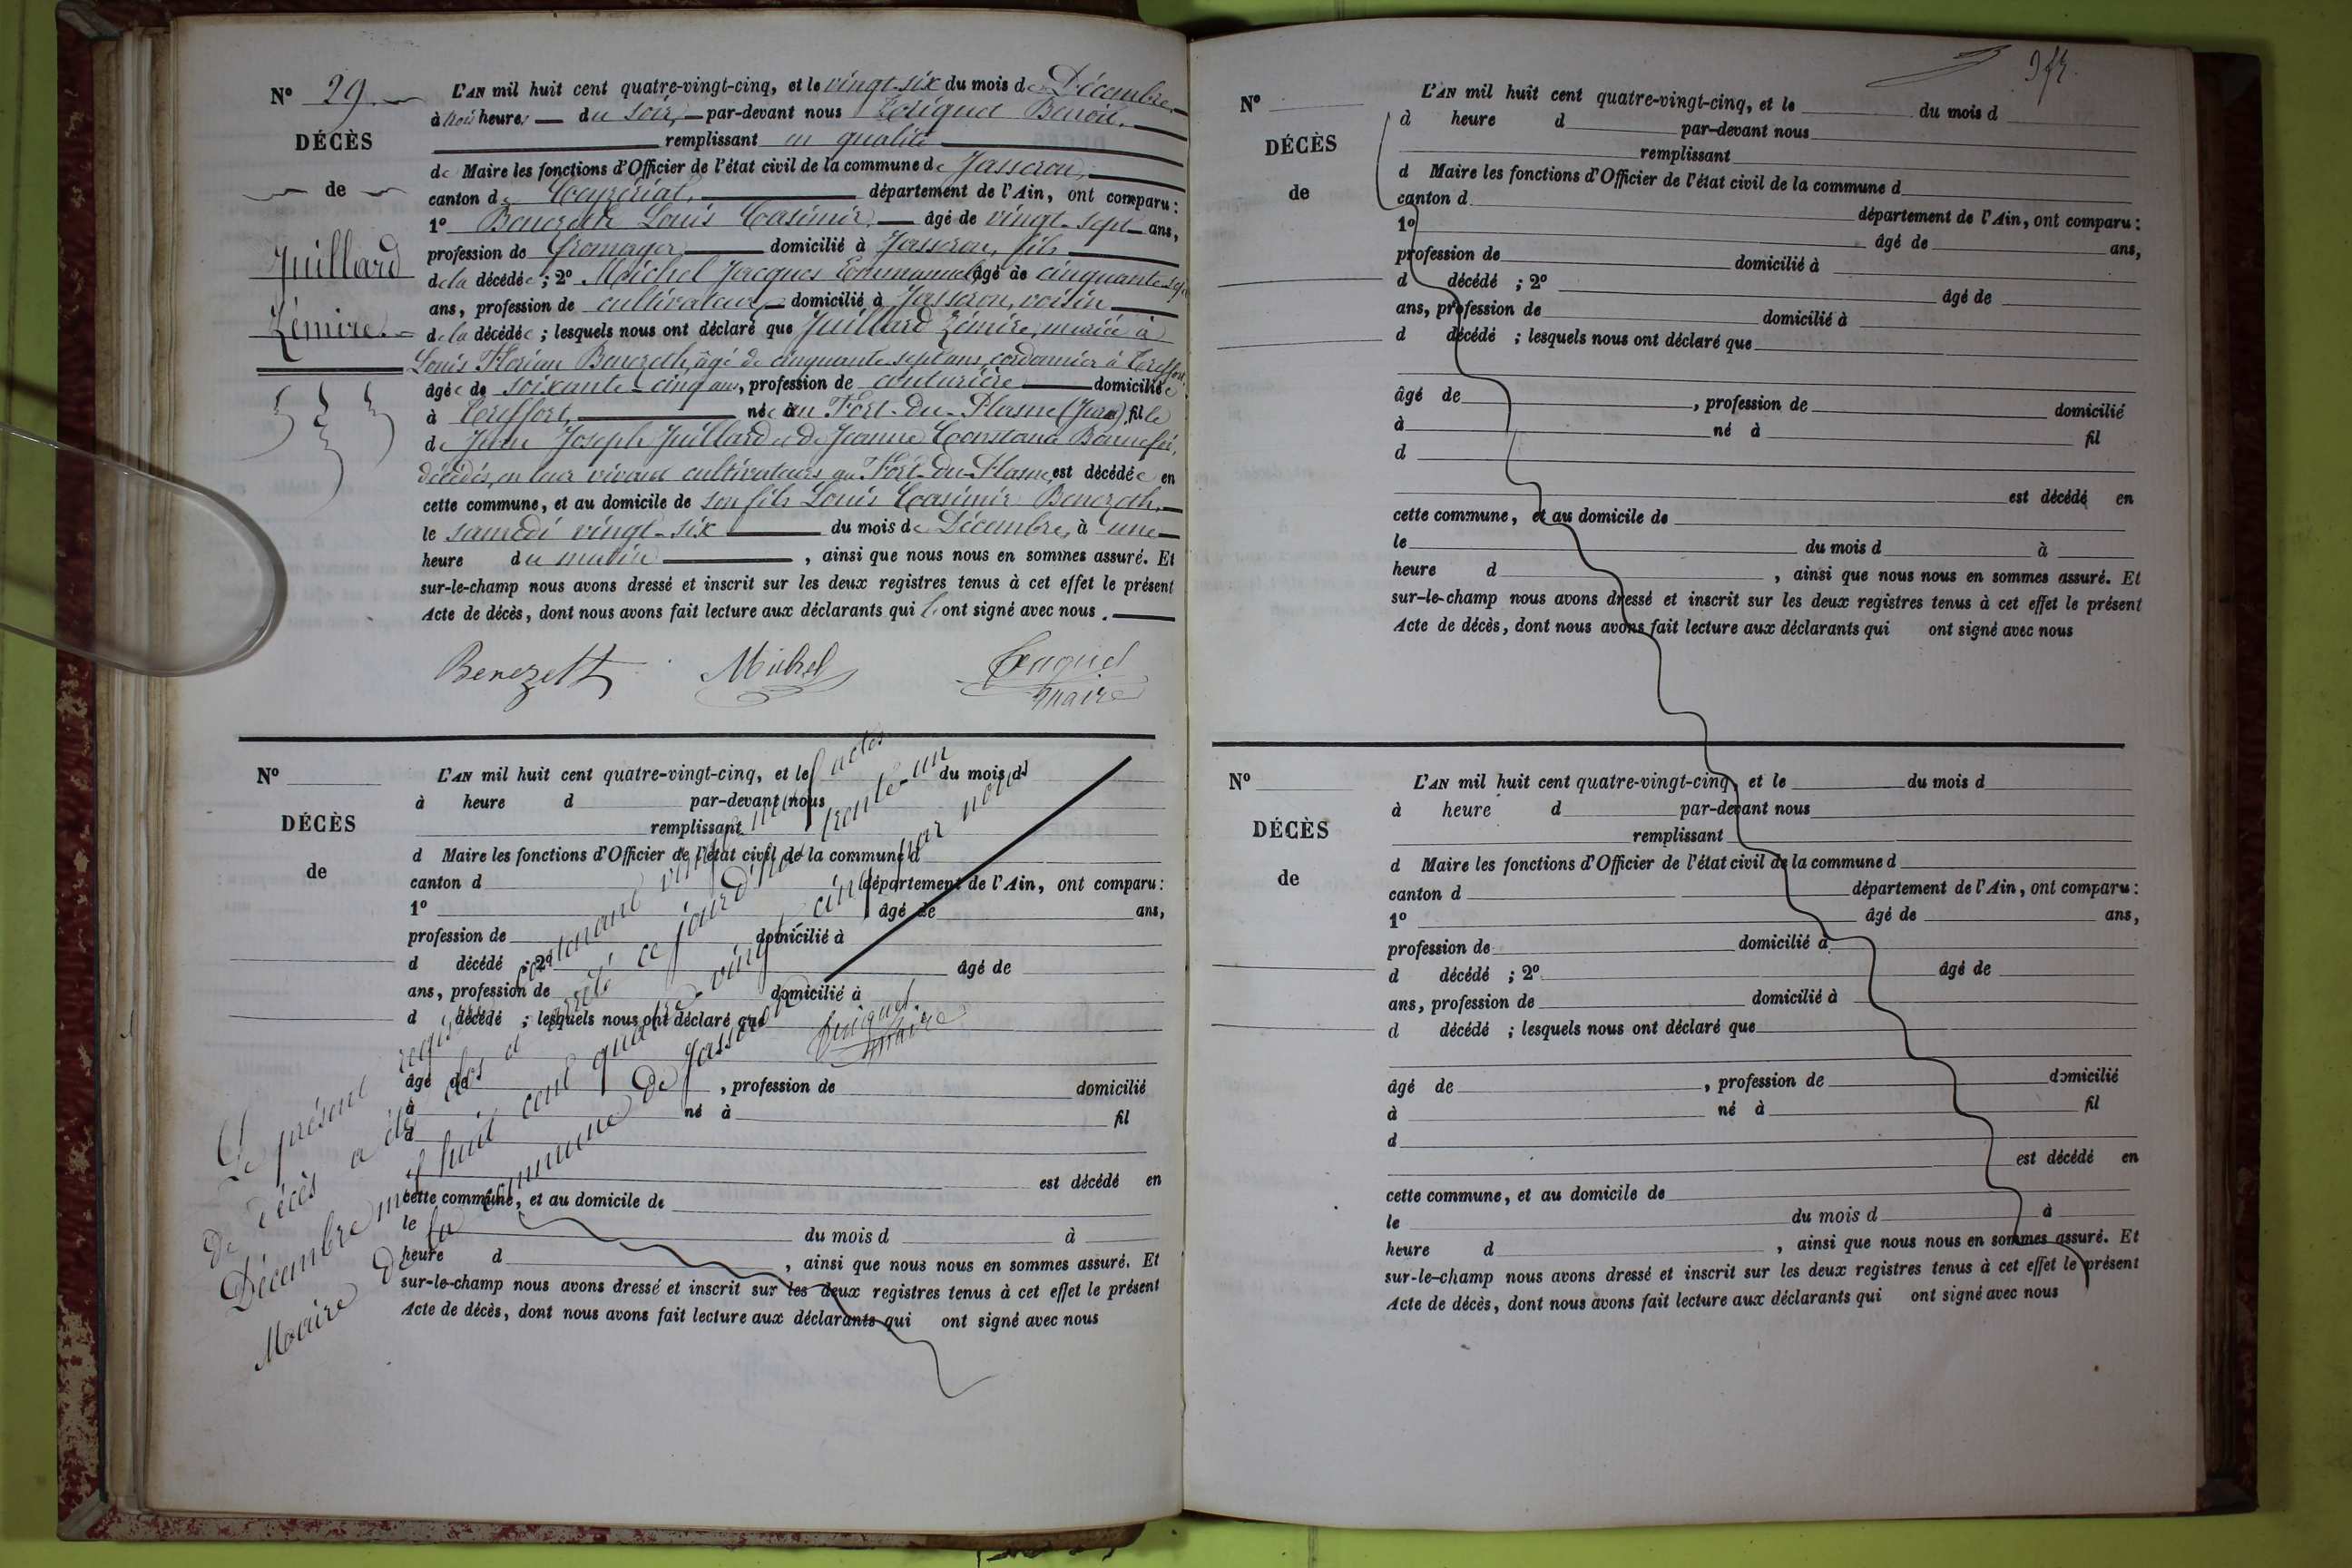 N° 29
DÉCÈS
de
Juillard
Zémire.
L'AN mil huit cent quatre-vingt-cinq, et le vingt-six du mois de Décembre
à trois heures du soir, par-devant nous Benoit.
remplissant en qualité
de Maire les fonctions d'Officier de l'état civil de la commune de Jasseron,
canton de Ceyzériat, département de l'Ain, ont comparu :
1° Benezeth Louis Casimir, âgé de vingt-sept ans,
profession de fromager domicilié à Jasseron, fils
de la décédée ; 2° Michel Jacques Emmanuel, âgé de cinquante sept
ans, profession de cultivateur, domicilié à Jasseron, voisin
de la décédée ; lesquels nous ont déclaré que Juillard Zémire, mariée à
Louis Florian Benezeth, âgé de cinquante sept ans, cordonnier à Treffort,
âgée de soixante-cinq ans, profession de couturière domiciliée
à Treffort, née au Fort-du-Plasne (Jura), fille
de Jean Joseph Juillard et de Jeanne Constance
décédés, en leur vivant cultivateurs au Fort-du-Plasne, est décédée en
cette commune, et au domicile de son fils Louis Casimir Benezeth,
le samedi vingt-six du mois de Décembre, à une
heure du matin, ainsi que nous nous en sommes assuré. Et
sur-le-champ nous avons dressé et inscrit sur les deux registres tenus à cet effet le présent
Acte de décès, dont nous avons fait lecture aux déclarants qui l'ont signé avec nous.
Benezeth Michel
maire
N°
DÉCÈS
de
L'AN mil huit cent quatre-vingt-cinq, et le du mois d
à heure d par-devant nous
remplissant
d Maire les fonctions d'Officier de l'état civil de la commune d
canton d département de l'Ain, ont comparu :
1° âgé de ans,
profession de domicilié à
d décédé ; 2° âgé de
ans, profession de domicilié à
d décédé ; lesquels nous ont déclaré que
âgé de , profession de domicilié
à né à fil
d
est décédé en
cette commune, et au domicile de
le du mois d à
heure d , ainsi que nous nous en sommes assuré. Et
sur-le-champ nous avons dressé et inscrit sur les deux registres tenus à cet effet le présent
Acte de décès, dont nous avons fait lecture aux déclarants qui ont signé avec nous
Le présent registre contenant vingt neuf actes
de décès a été clos et arrêté ce jourd'hui trente-un
Décembre mil huit cent quatre-vingt cinq par nous
Maire de la commune de Jasseron
maire
N°
DÉCÈS
de
L'AN mil huit cent quatre-vingt-cinq, et le du mois d
à heure d par-devant nous
remplissant
d Maire les fonctions d'Officier de l'état civil de la commune d
canton d département de l'Ain, ont comparu :
1° âgé de ans,
profession de domicilié à
d décédé ; 2° âgé de
ans, profession de domicilié à
d décédé ; lesquels nous ont déclaré que
âgé de , profession de domicilié
à né à fil
d
est décédé en
cette commune, et au domicile de
le du mois d à
heure d , ainsi que nous nous en sommes assuré. Et
sur-le-champ nous avons dressé et inscrit sur les deux registres tenus à cet effet le présent
Acte de décès, dont nous avons fait lecture aux déclarants qui ont signé avec nous
N°
DÉCÈS
de
L'AN mil huit cent quatre-vingt-cinq, et le du mois d
à heure d par-devant nous
remplissant
d Maire les fonctions d'Officier de l'état civil de la commune d
canton d département de l'Ain, ont comparu :
1° âgé de ans,
profession de domicilié à
d décédé ; 2° âgé de
ans, profession de domicilié à
d décédé ; lesquels nous ont déclaré que
âgé de , profession de domicilié
à né à fil
d
est décédé en
cette commune, et au domicile de
le du mois d à
heure d , ainsi que nous nous en sommes assuré. Et
sur-le-champ nous avons dressé et inscrit sur les deux registres tenus à cet effet le présent
Acte de décès, dont nous avons fait lecture aux déclarants qui ont signé avec nous